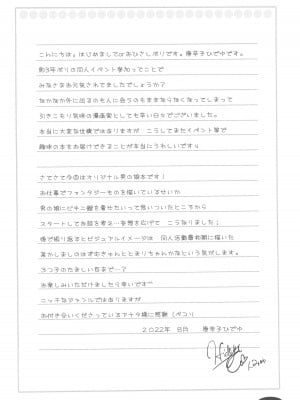 こんにちは。はじめましてorおひさしぶりです。唐辛子ひでゆです。
約3年ぶりの同人イベント参加ってことで
みなさまお元気されてましたでしょうか？
なかなか外に出るのも人に会うのもままならなくなってしまって
引きこもり気味の漫画家としても辛い日々でございました。
本当に大変な仕様ではありますが こうしてまたイベント等で
趣味の本をお届けできることが本当にうれしいです！
さてさて今回はオリジナル男の娘本です！
お仕事でファンタジーものを描いているせいか
男の娘にビキニ鎧を着せたいって思いついたところから
スタートしてお話を考え…妄想を広げて こうなりました；
後で振り返るとビジュアルイメージは 同人活動最初期に描いた
富かしましのはずむきゅんととまりちゃんかなという気がします。
3つ子のたましい百まで…？
お楽しみいただけましたら幸いです
ニッチなジャンルではありますが
お付き合いくださっているアナタ様に感謝（ペコリ
2022年 8月 唐辛子ひでゆ